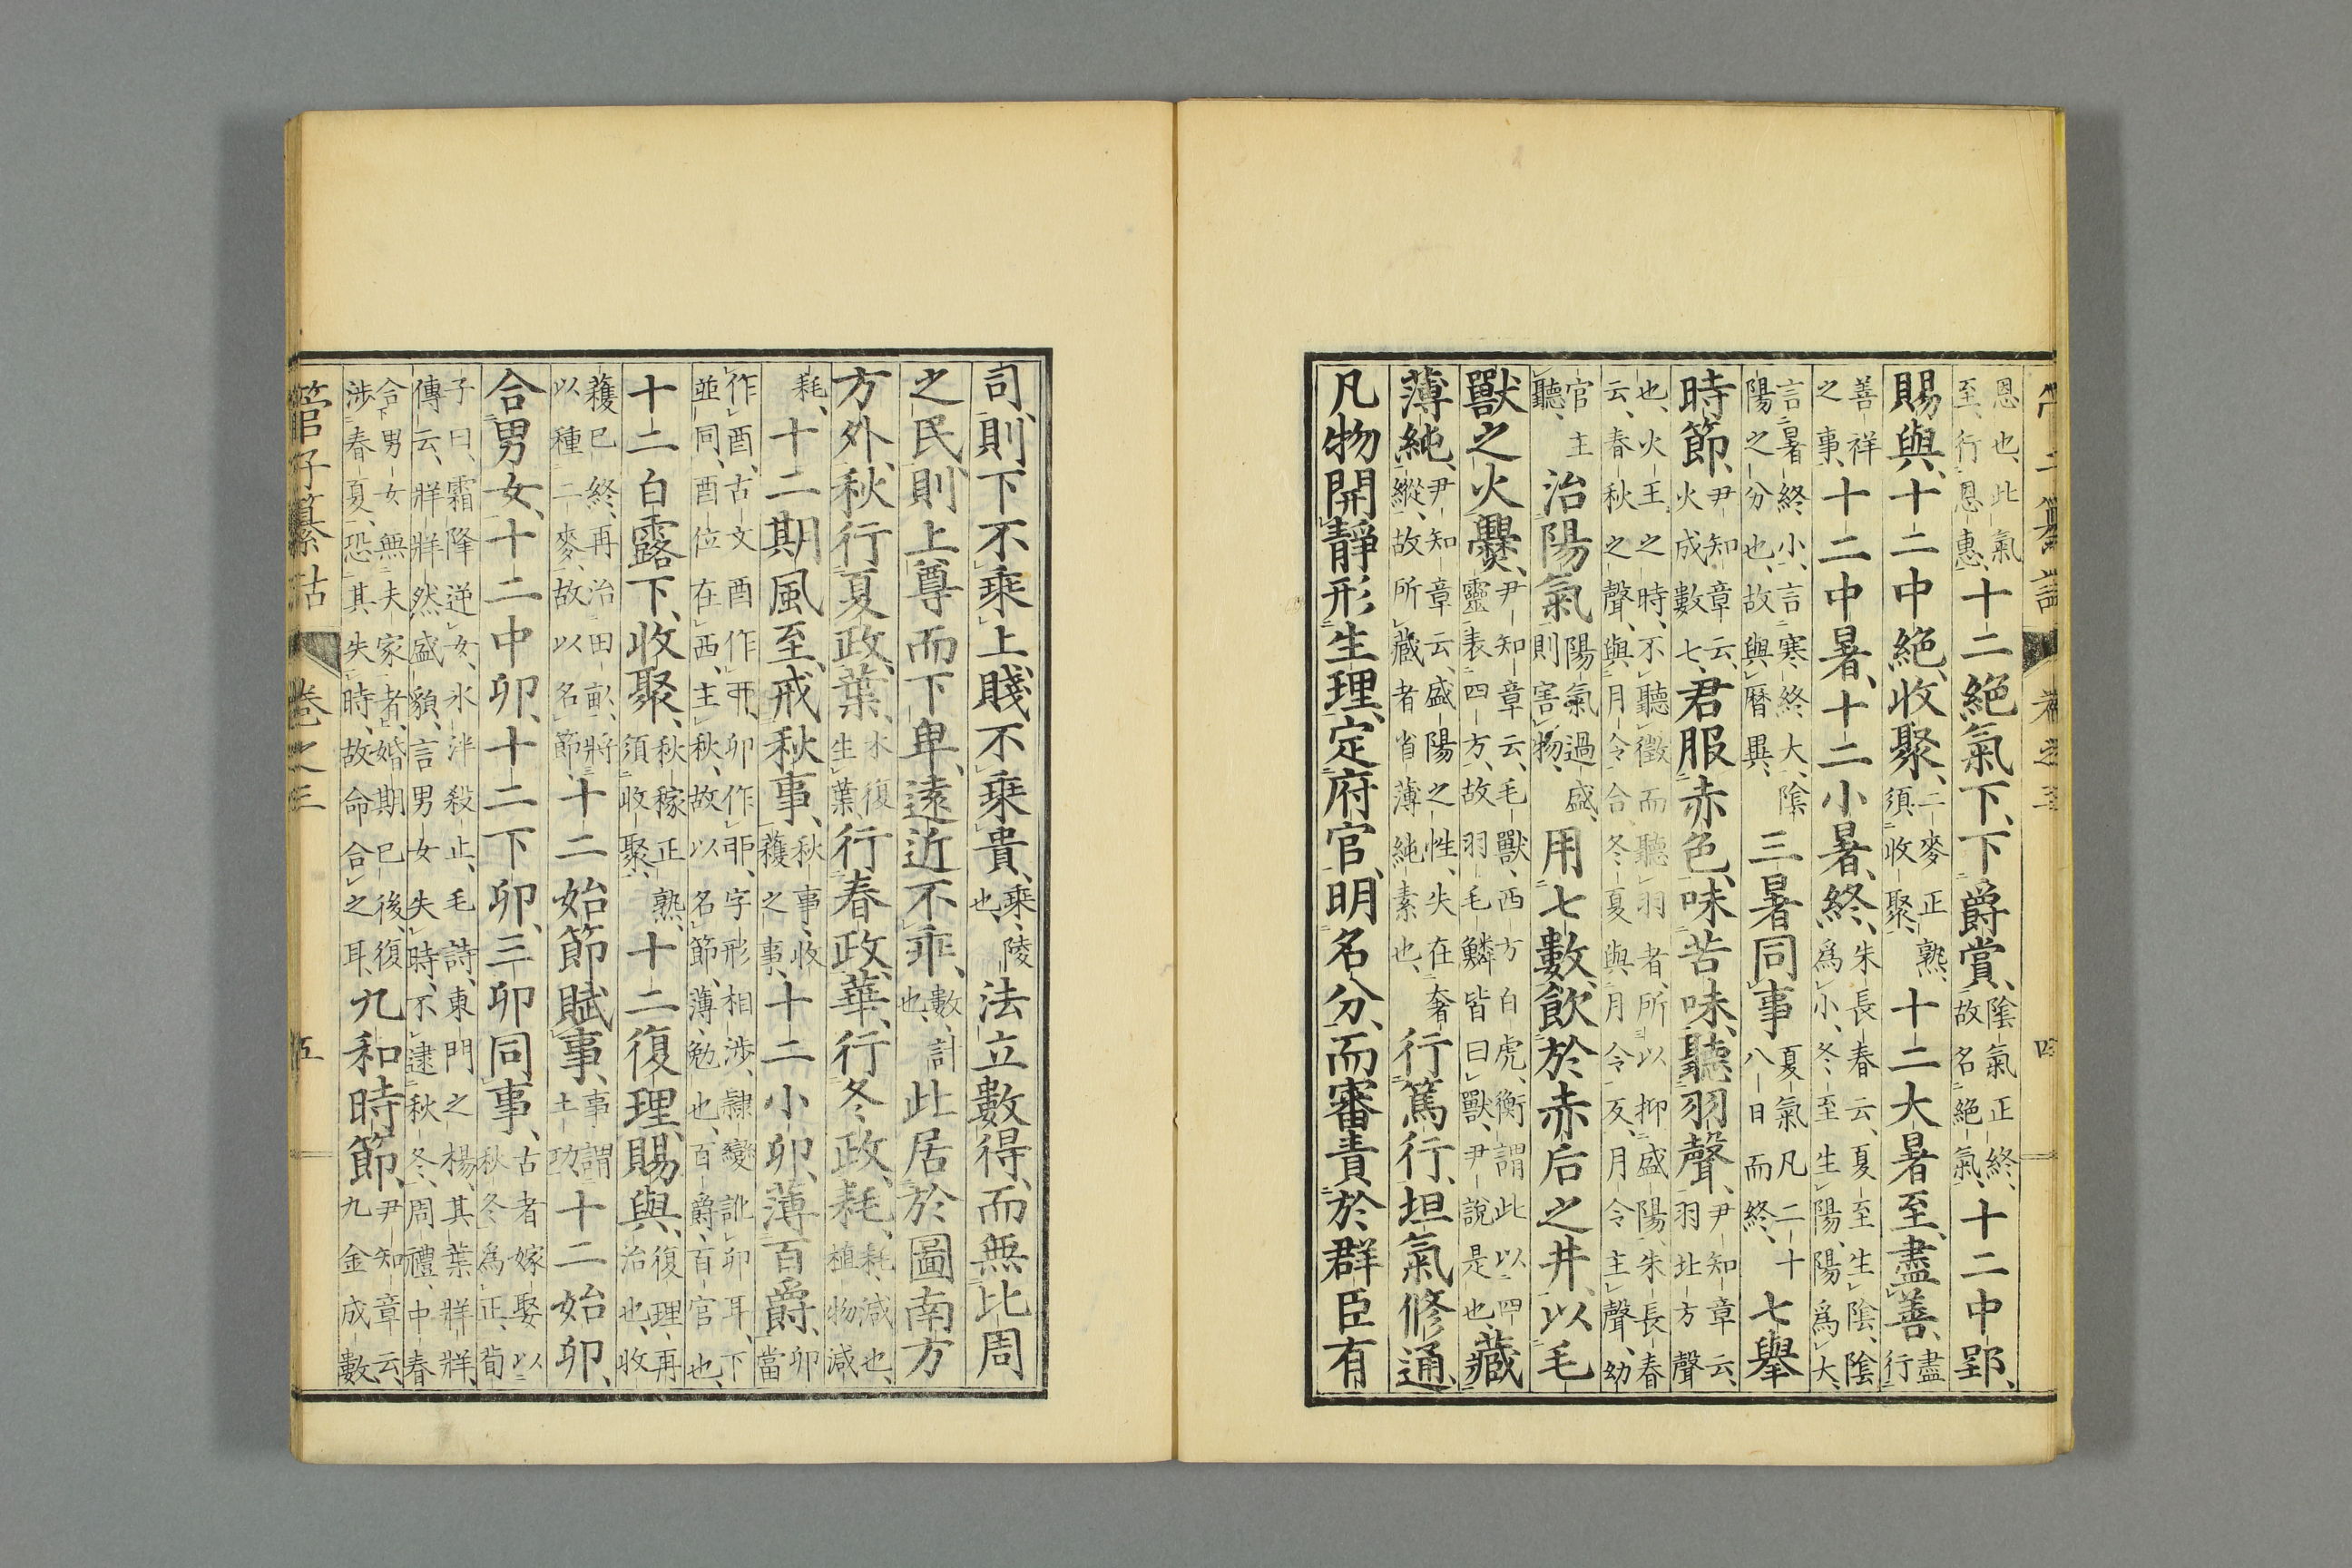 管子纂詁 卷之三 四
恩也、此氣至、行恩惠、十二絕氣下、下爵賞、陰氣正終、故名絕氣、十二中郢、
賜與、十二中絕、收聚、二麥正熟、須收聚、十二大暑至、盡善、盡行
善祥之事、十二中暑、十二小暑、終、朱長春云、夏至生陰、陰爲小、冬至生陽、陽爲大、
言暑終小、言寒終大、陰陽之分也、故與曆異、三暑同事 夏氣凡二十八日而終、七舉
時節、尹知章云、火成數七、君服赤色、味苦味、聽羽聲、尹知章云、羽北方聲
也、火王之時、不聽徵而聽羽者、所以抑盛陽、朱長春云、春秋之聲、與月令合、冬夏與月令反、月令主聲、幼
官主聽、治陽氣 陽氣過盛、則害物、用七數、飮於赤后之井、以毛
獸之火爨、尹知章云、毛獸、西方白虎、衡謂此以四靈表四方、故羽毛鱗皆曰獸、尹說是也、藏
薄純、尹知章云、盛陽之性、失在奢縱、故所藏者省薄純素也、行篤行、坦氣修通、
凡物開靜形生理、定府官、明名分、而審責於群臣有
司、則下不乘上、賤不乘貴、乘、陵也、法立數得、而無比周
之民、則上尊而下卑、遠近不乖、數、計也、此居於圖南方
方外、秋行夏政、葉、木復生葉、行春政、華、行冬政、耗、耗、減也、植物減
耗、十二期風至、戒秋事、秋事、收穫之事、十二小卯、薄百爵、卯當
作酉、古文酉作丣、卯作戼、字形相涉、隷變訛卯耳、下並同、酉位在西、主秋、故以名節、薄、勉也、百爵、百官也、
十二白露下、收聚、秋稼正熟、須收聚、十二復理、賜與、復理、再治也、收
穫已終、再治田畝、將以種二麥、故以名節、十二始節、賦事、事謂土功、十二始卯、
合男女、十二中卯、十二下卯、三卯同事、古者嫁娶以秋冬爲正、荀
子曰、霜降逆女、氷泮殺止、毛詩、東門之楊、其葉牂牂、傳云、牂牂然盛貌、言男女失時、不逮秋冬、周禮、中春
合男女無夫家者、婚期已後、復涉春夏、恐其失時、故命合之耳、九和時節、尹知章云、九金成數
管子纂詁 卷之三 五